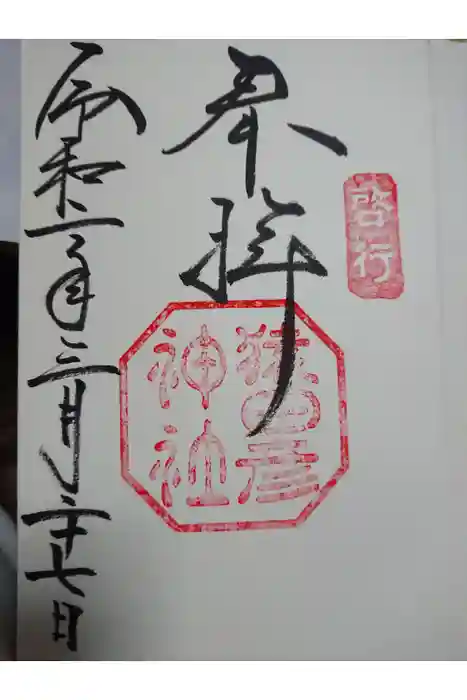 啓行
奉拝
猿田彦
神社
令和二年三月二十七日